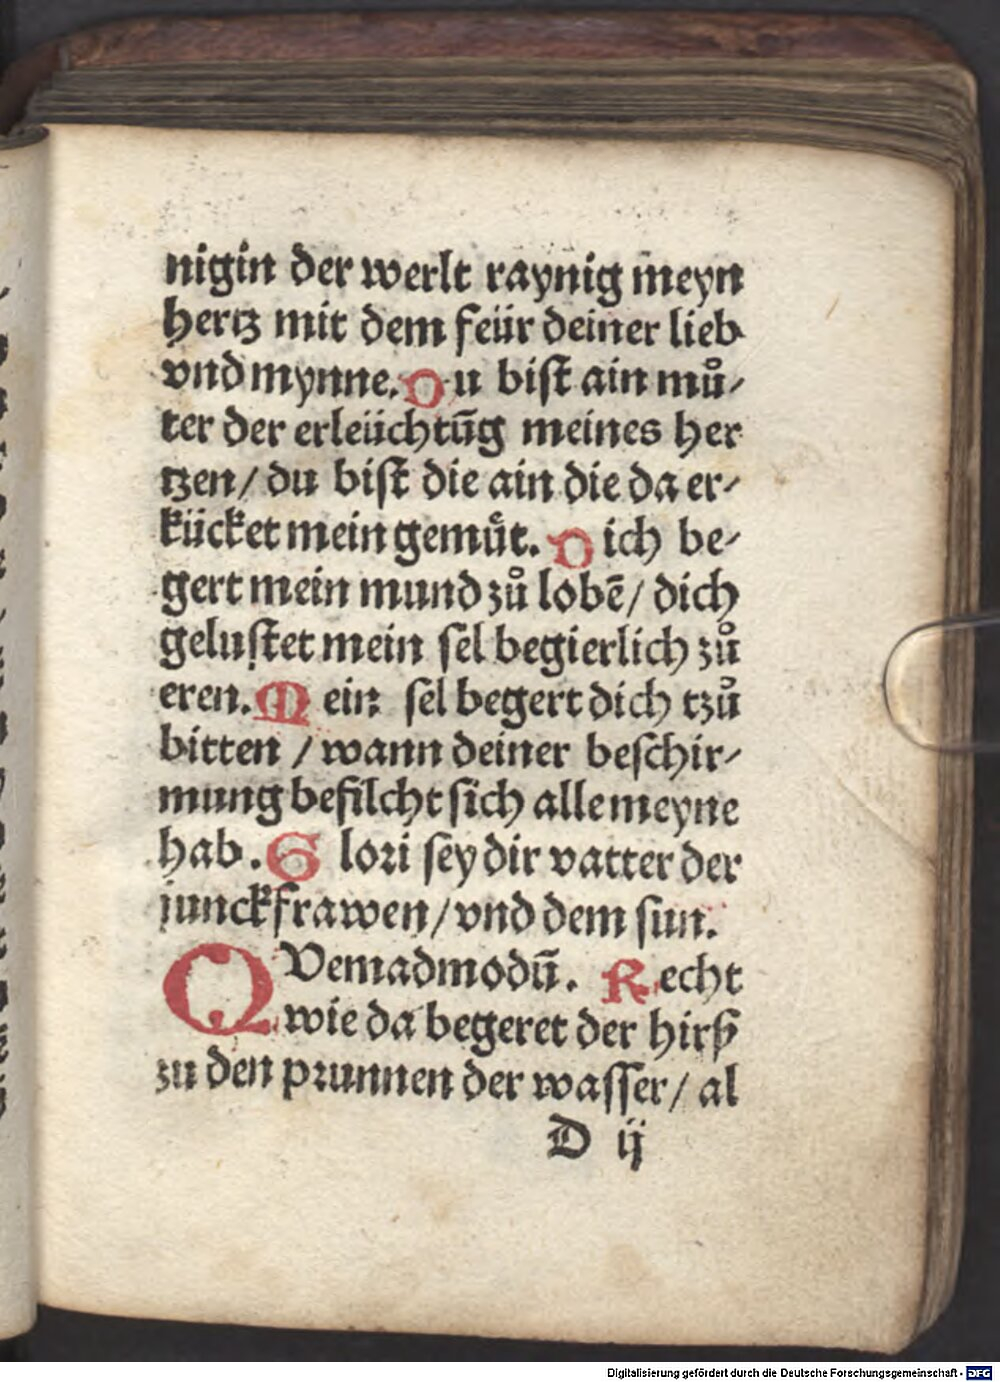 nigin der werlt raynig meyn
hertz mit dem feür deiner lieb
vnd mynne. Du bist ain mů⸗
ter der erleüchtūg meines her
tzen / du bist die ain die da er⸗
kücket mein gemuͤt. Dich be⸗
gert mein mund zů lobē / dich
gelustet mein sel begierlich zů
eren. Mein sel begert dich tzů
bitten / wann deiner beschir⸗
mung befilcht sich alle meyne
hab. Glori sey dir vatter der
junckfrawen / vnd dem sun.
QVemadmodū. Recht
wie da begeret der hirß
zu den prunnen der wasser / al
D ij
Digitalisierung gefördert durch die Deutsche Forschungsgemeinschaft - DFG